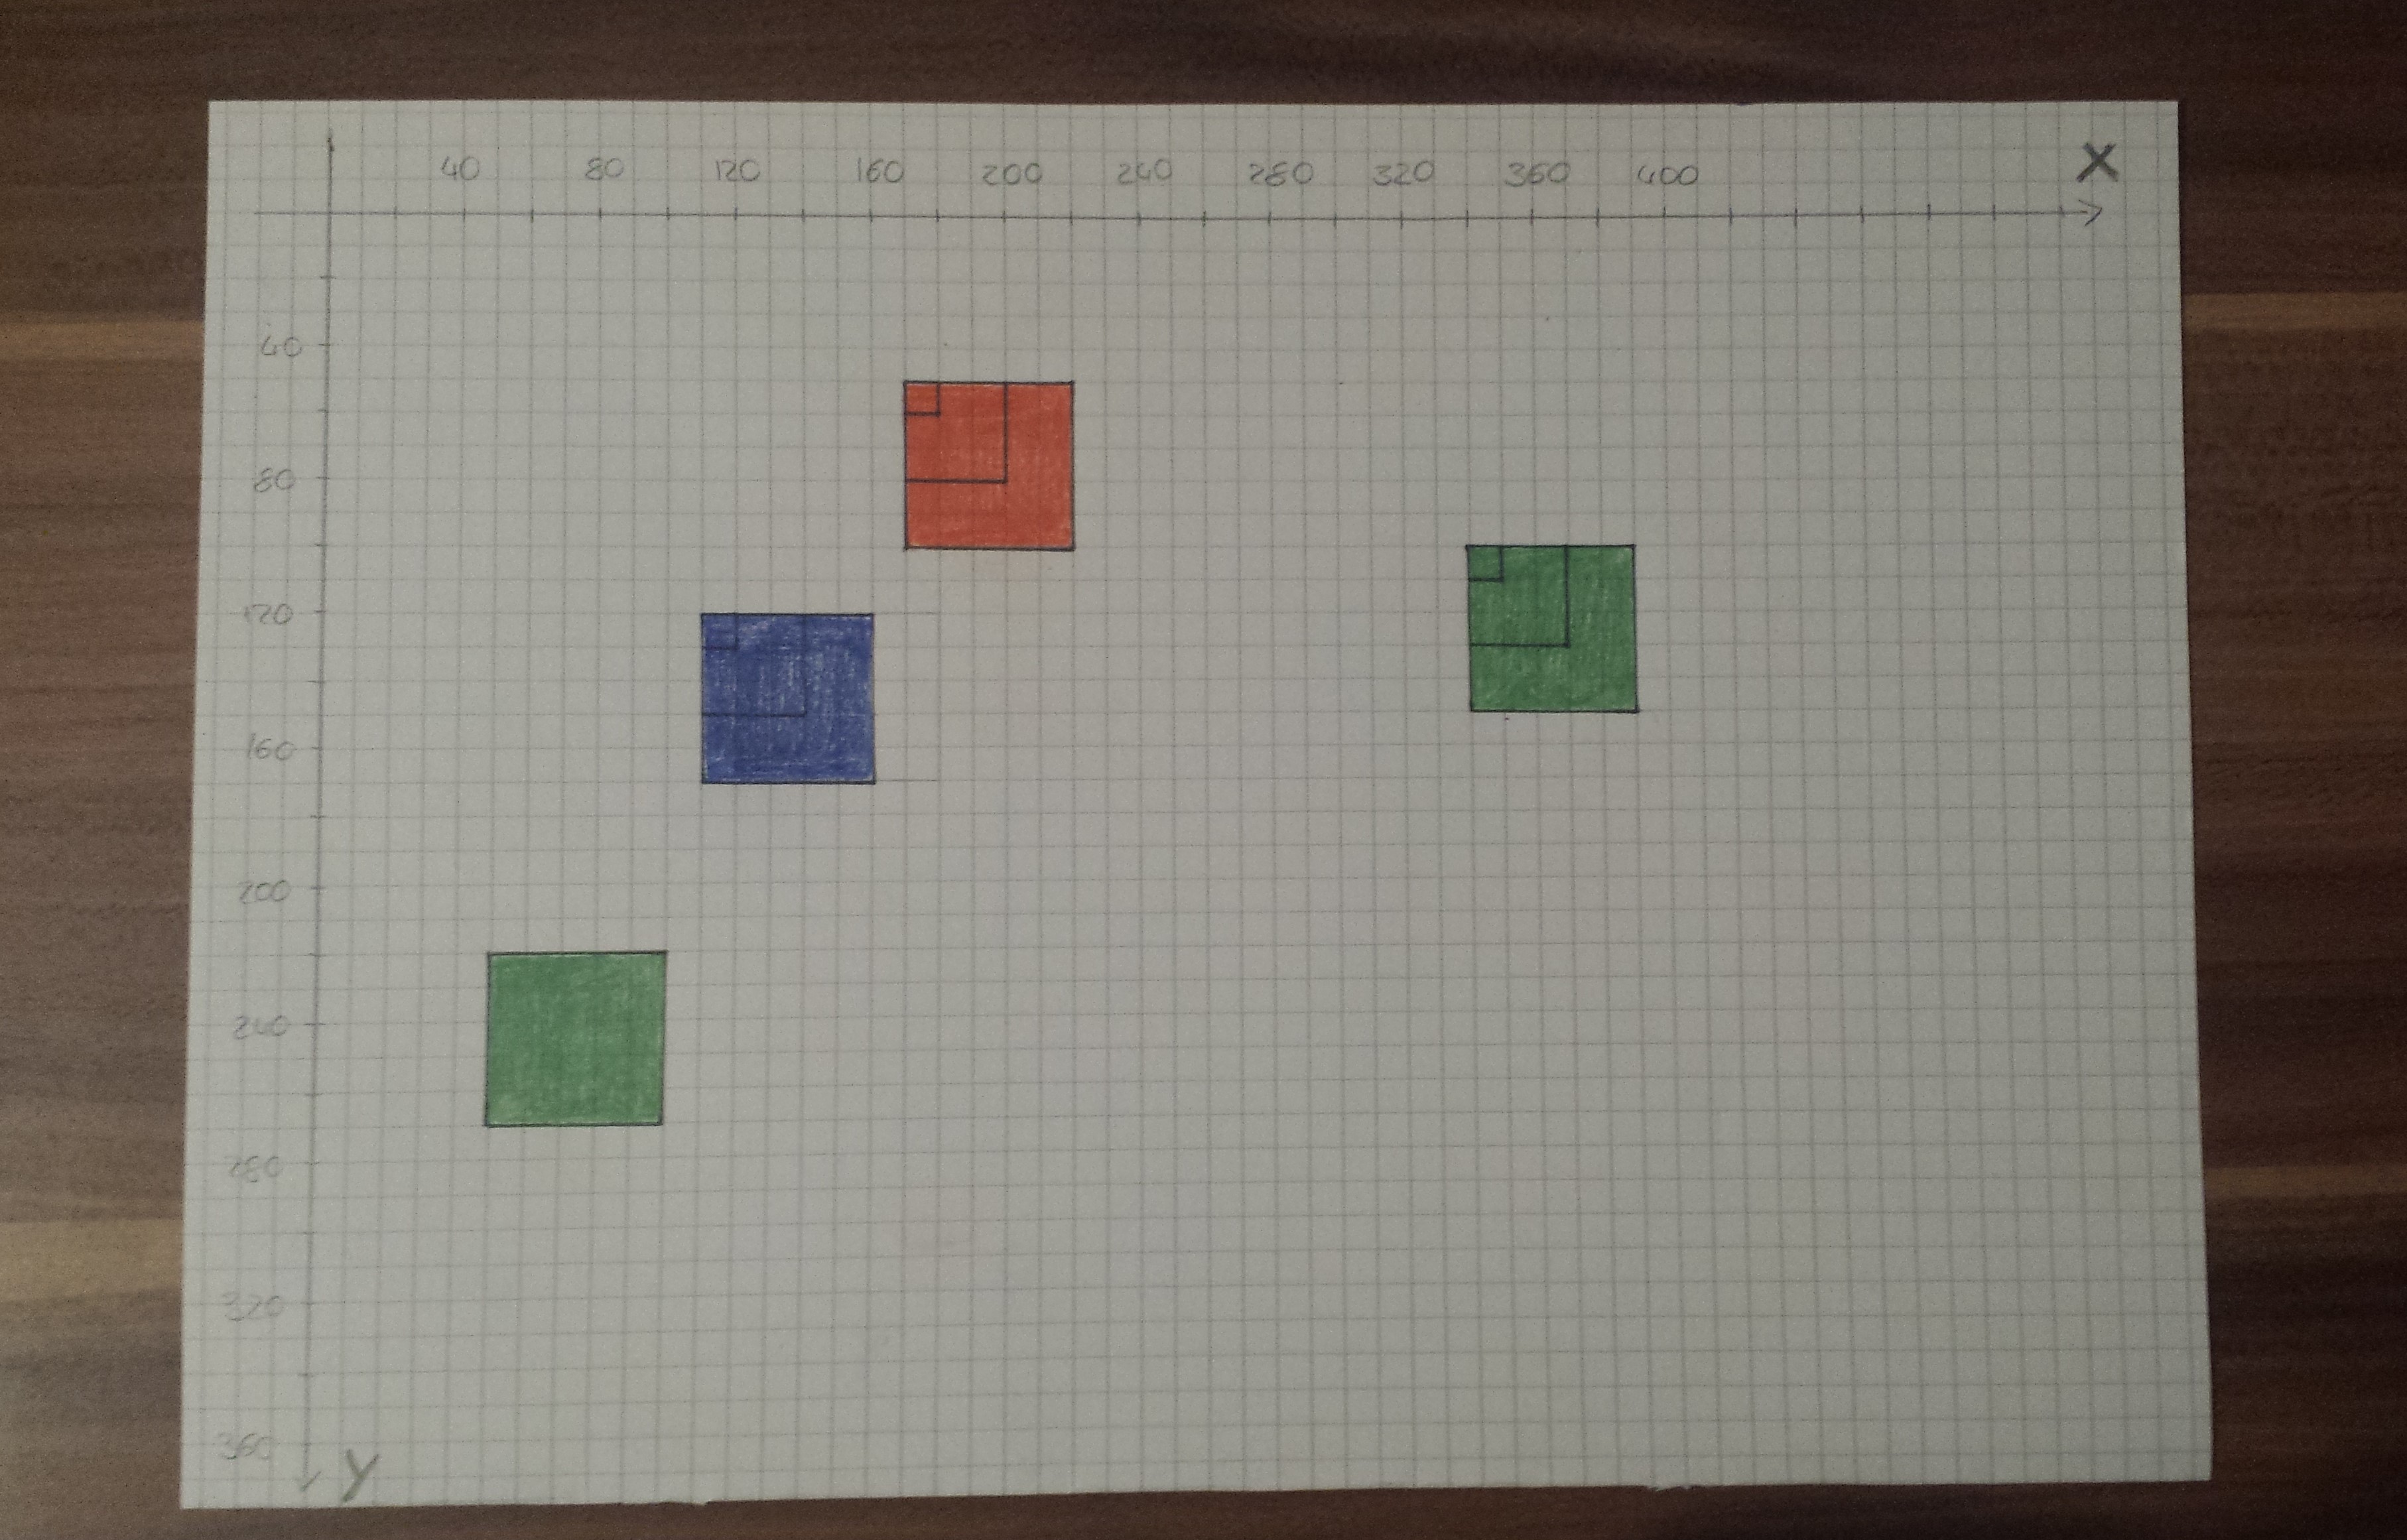 40 80 120 160 200 240 280 320 360 400 X
40
80
120
160
200
240
280
320
360
Y